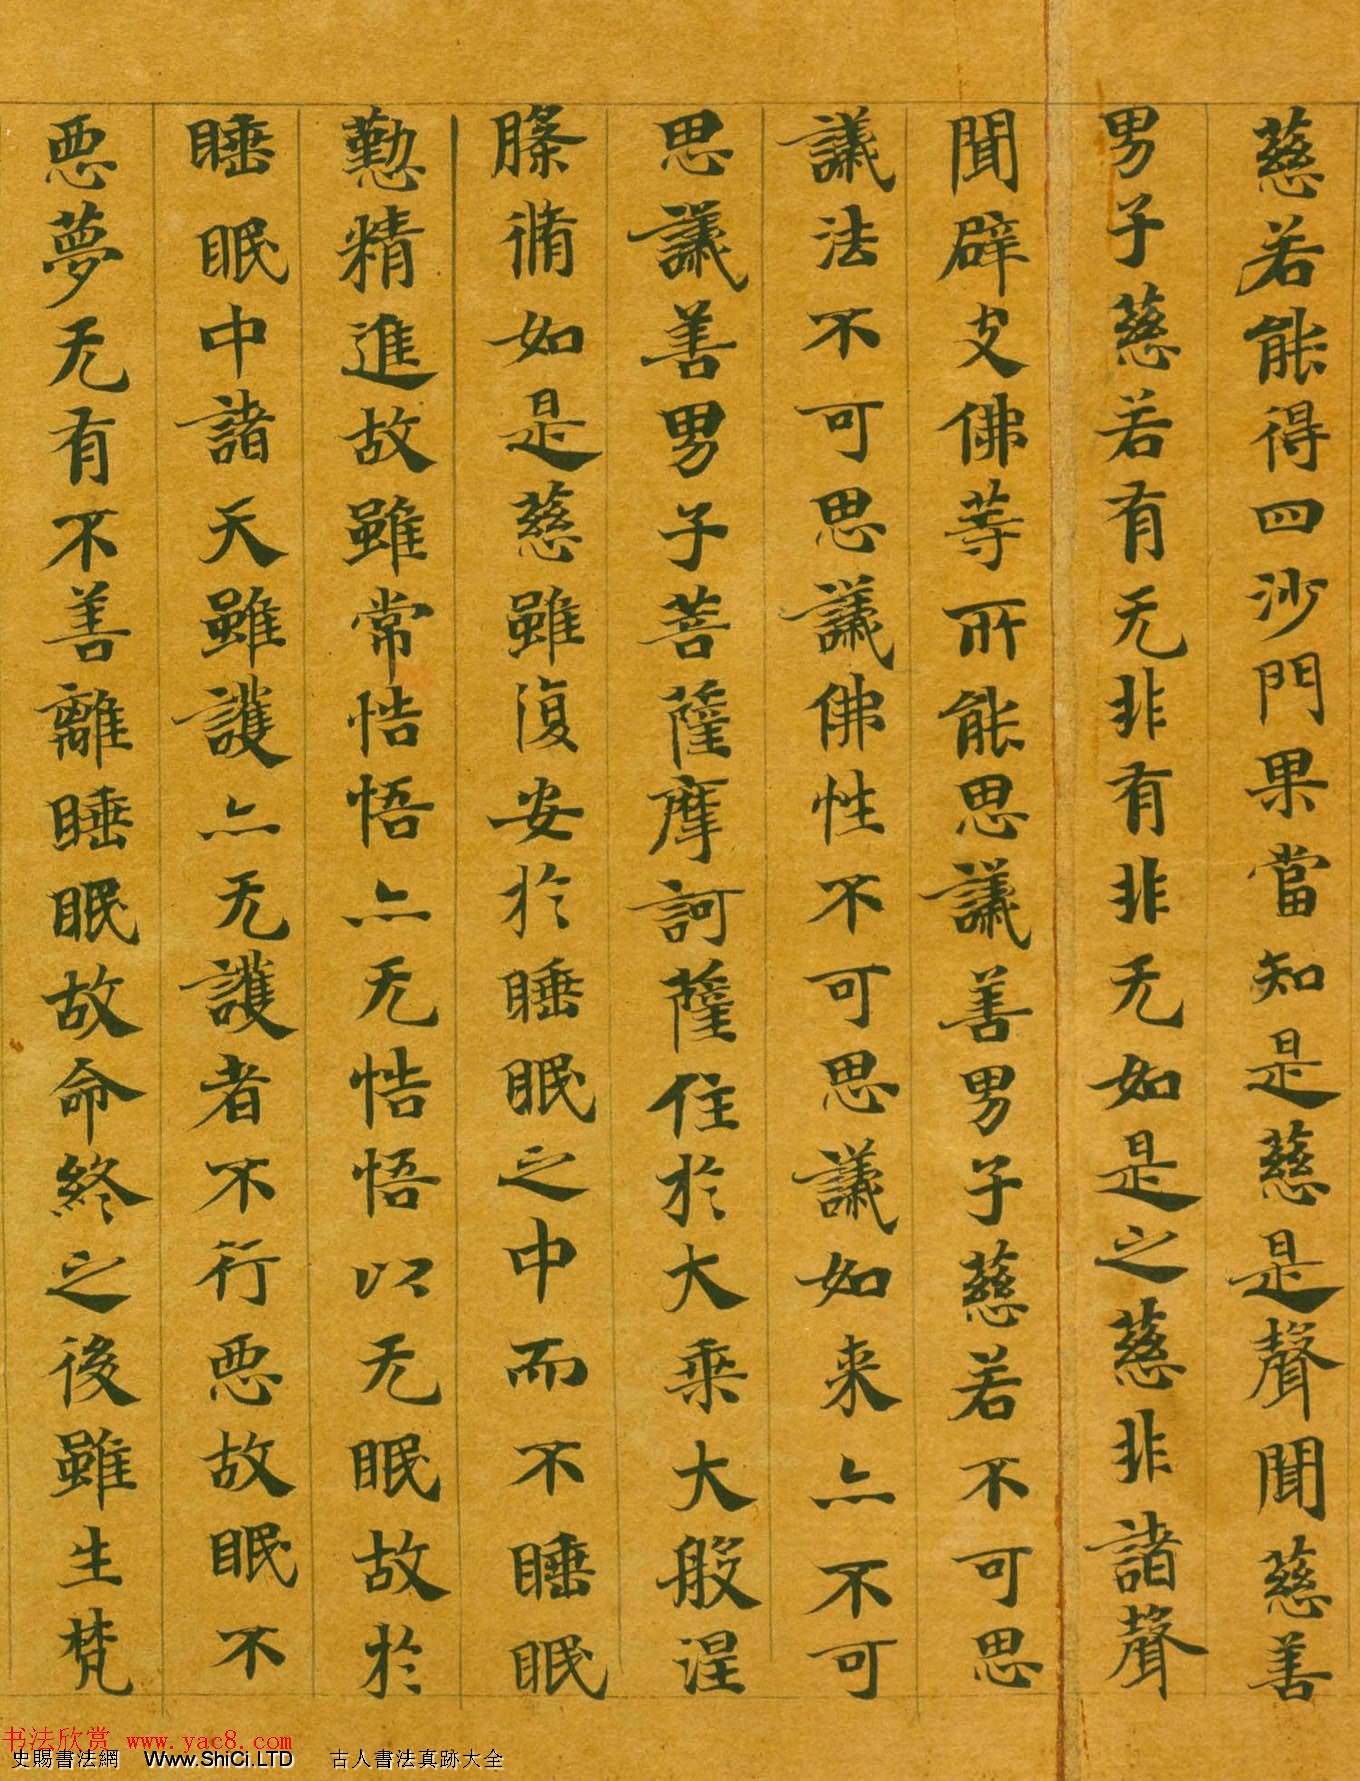 慈若能得四沙門果當知是慈是聲聞慈善
男子慈若有无非有非无如是之慈非諸聲
聞辟支佛等所能思議善男子慈若不可思
議法不可思議佛性不可思議如来亦不可
思議善男子菩薩摩訶薩住於大乘大般涅
槃脩如是慈雖復安於睡眠之中而不睡眠
懃精進故雖常悎悟亦无悎悟以无眠故於
睡眠中諸天雖護亦无護者不行惡故眠不
惡夢无有不善離睡眠故命終之後雖生梵
书法欣赏 www.yac8.com
史賜書法網 Www.ShiCi.LTD 古人書法真跡大全